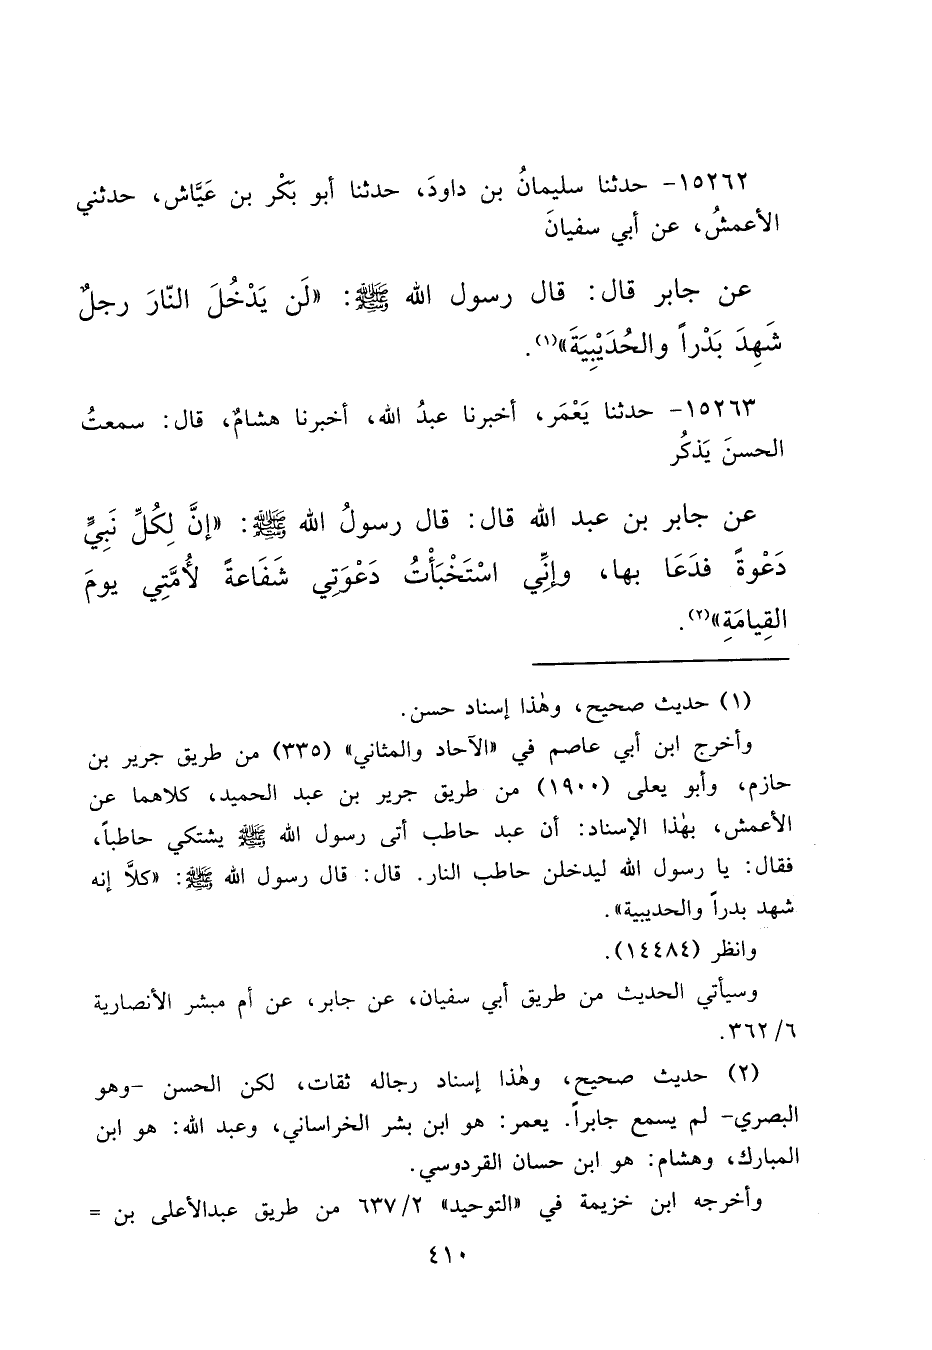 ١٥٢٦٢- حدثنا سليمانُ بن داودَ، حدثنا أبو بَكْر بن عَيَّاش، حدثني
الأعمشُ، عن أبي سفيانَ
عن جابر قال: قال رسول الله ﷺ: «لَن يَدْخُلَ النّارَ رجلٌ
شَهِدَ بَدْراً والحُدَيْبِيَةَ»(١).
١٥٢٦٣- حدثنا يَعْمَر، أخبرنا عبدُ الله، أخبرنا هشامٌ، قال: سمعتُ
الحسنَ يَذكُر
عن جابر بن عبد الله قال: قال رسولُ الله ﷺ: «إنَّ لِكُلِّ نَبِيٍّ
دَعْوةً فدَعَا بها، وإنِّي اسْتَخْبَأْتُ دَعْوَتِي شَفَاعةً لأُمَّتِي يومَ
القِيامَةِ»(٢).
(١) حديث صحيح، وهٰذا إسناد حسن.
وأخرج ابن أبي عاصم في «الآحاد والمثاني» (٣٣٥) من طريق جرير بن
حازم، وأبو يعلى (١٩٠٠) من طريق جرير بن عبد الحميد، كلاهما عن
الأعمش، بهٰذا الإسناد: أن عبد حاطب أتى رسول الله ﷺ يشتكي حاطباً،
فقال: يا رسول الله ليدخلن حاطب النار. قال: قال رسول الله ﷺ: «كلاَّ إنه
شهد بدراً والحديبية».
وانظر (١٤٤٨٤).
وسيأتي الحديث من طريق أبي سفيان، عن جابر، عن أم مبشر الأنصارية
٦/ ٣٦٢.
(٢) حديث صحيح، وهٰذا إسناد رجاله ثقات، لكن الحسن -وهو
البصري- لم يسمع جابراً. يعمر: هو ابن بشر الخراساني، وعبد الله: هو ابن
المبارك، وهشام: هو ابن حسان القردوسي.
وأخرجه ابن خزيمة في «التوحيد» ٢/ ٦٣٧ من طريق عبدالأعلى بن =
٤١٠